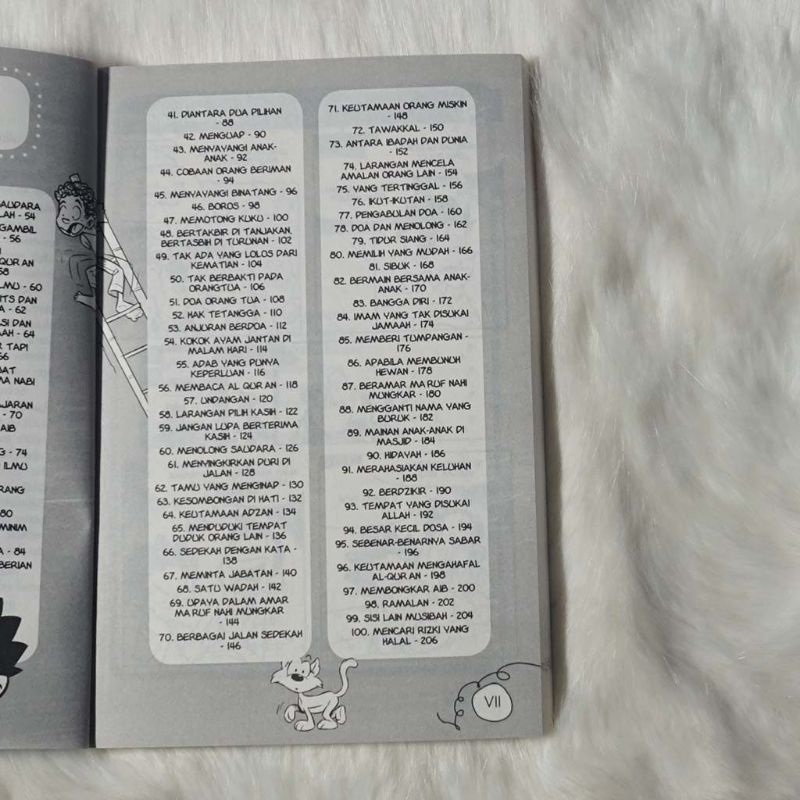 SAUDARA
- 54
- 56
QUR'AN
58
ILMU - 60
DAN
- 62
DAN
- 64
TAPI
66
NABI
- 70
AIB
- 74
ILMU
ORANG
80
MINIM
- 84
41. DIANTARA DUA PILIHAN
- 88
42. MENGUAP - 90
43. MENYAYANGI ANAK-
ANAK - 92
44. COBAAN ORANG BERIMAN
- 94
45. MENYAYANGI BINATANG - 96
46. BOROS - 98
47. MEMOTONG KUKU - 100
48. BERTAKBIR DI TANJAKAN,
BERTASBIH DI TURUNAN - 102
49. TAK ADA YANG LOLOS DARI
KEMATIAN - 104
50. TAK BERBAKTI PADA
ORANGTUA - 106
51. DOA ORANG TUA - 108
52. HAK TETANGGA - 110
53. ANJURAN BERDOA - 112
54. KOKOK AYAM JANTAN DI
MALAM HARI - 114
55. ADAB YANG PUNYA
KEPERLUAN - 116
56. MEMBACA AL QUR'AN - 118
57. UNDANGAN - 120
58. LARANGAN PILIH KASIH - 122
59. JANGAN LUPA BERTERIMA
KASIH - 124
60. MENOLONG SAUDARA - 126
61. MENYINGKIRKAN DURI DI
JALAN - 128
62. TAMU YANG MENGINAP - 130
63. KESOMBONGAN DI HATI - 132
64. KEUTAMAAN ADZAN - 134
65. MENDUDUKI TEMPAT
DUDUK ORANG LAIN - 136
66. SEDEKAH DENGAN KATA -
138
67. MEMINTA JABATAN - 140
68. SATU WADAH - 142
69. UPAYA DALAM AMAR
MA'RUF NAHI MUNGKAR
- 144
70. BERBAGAI JALAN SEDEKAH
- 146
71. KEUTAMAAN ORANG MISKIN
- 148
72. TAWAKKAL - 150
73. ANTARA IBADAH DAN DUNIA
- 152
74. LARANGAN MENCELA
AMALAN ORANG LAIN - 154
75. YANG TERTINGGAL - 156
76. IKUT-IKUTAN - 158
77. PENGABULAN DOA - 160
78. DOA DAN MENOLONG - 162
79. TIDUR SIANG - 164
80. MEMILIH YANG MUDAH - 166
81. SIBUK - 168
82. BERMAIN BERSAMA ANAK-
ANAK - 170
83. BANGGA DIRI - 172
84. IMAM YANG TAK DISUKAI
JAMAAH - 174
85. MEMBERI TUMPANGAN -
176
86. APABILA MEMBUNUH
HEWAN - 178
87. BERAMAR MA'RUF NAHI
MUNGKAR - 180
88. MENGGANTI NAMA YANG
BURUK - 182
89. MAINAN ANAK-ANAK DI
MASJID - 184
90. HIDAYAH - 186
91. MERAHASIAKAN KELUHAN
- 188
92. BERDZIKIR - 190
93. TEMPAT YANG DISUKAI
ALLAH - 192
94. BESAR KECIL DOSA - 194
95. SEBENAR-BENARNYA SABAR
- 196
96. KEUTAMAAN MENGAHAFAL
AL-QUR'AN - 198
97. MEMBONGKAR AIB - 200
98. RAMALAN - 202
99. SISI LAIN MUSIBAH - 204
100. MENCARI RIZKI YANG
HALAL - 206
VII